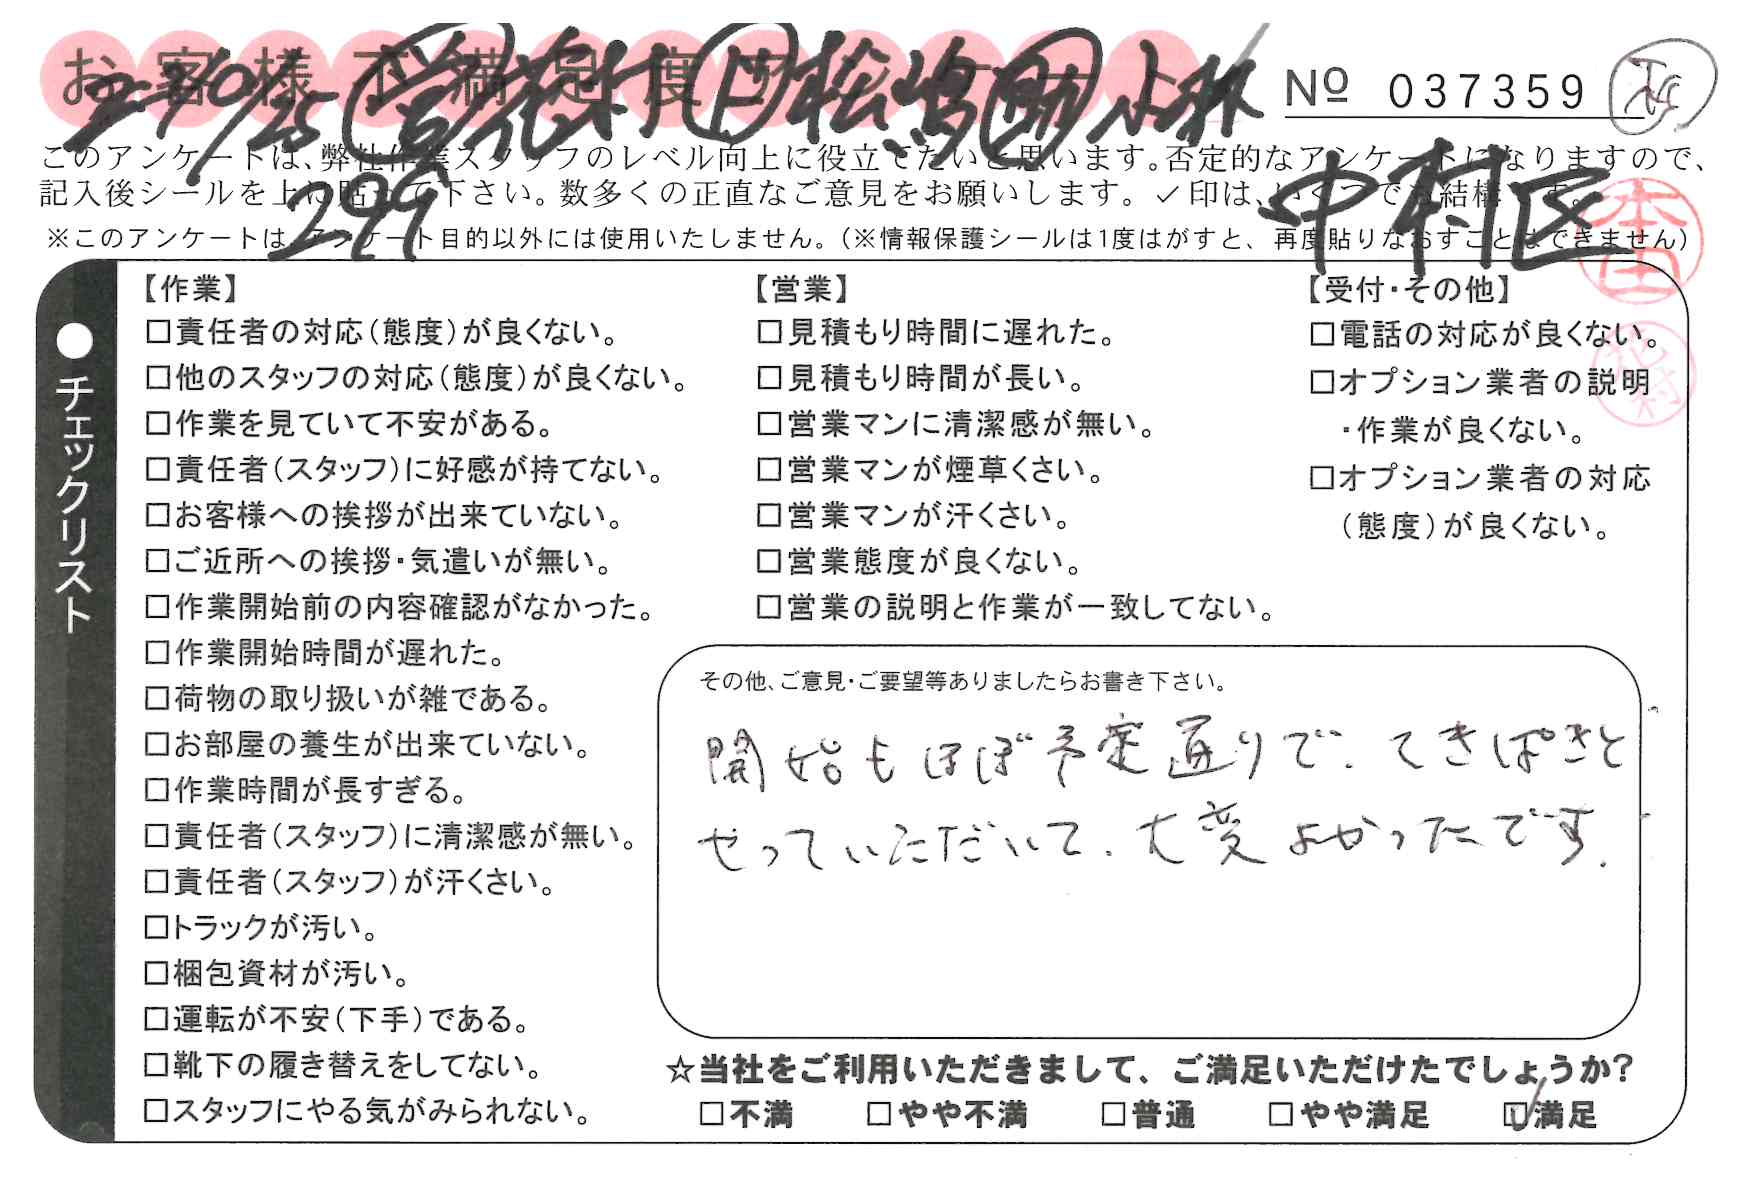 お客様不満足度アンケート
Nº 037359
このアンケートは、弊社作業スタッフのレベル向上に役立てたいと思います。否定的なアンケートになりますので、
記入後シールを上に貼って下さい。数多くの正直なご意見をお願いします。✓印は、いくつでも結構です。
299
中村区
※このアンケートは、アンケート目的以外には使用いたしません。(※情報保護シールは1度はがすと、再度貼りなおすことはできません)
●チェックリスト
【作業】
□責任者の対応(態度)が良くない。
□他のスタッフの対応(態度)が良くない。
□作業を見ていて不安がある。
□責任者(スタッフ)に好感が持てない。
□お客様への挨拶が出来ていない。
□ご近所への挨拶・気遣いが無い。
□作業開始前の内容確認がなかった。
□作業開始時間が遅れた。
□荷物の取り扱いが雑である。
□お部屋の養生が出来ていない。
□作業時間が長すぎる。
□責任者(スタッフ)に清潔感が無い。
□責任者(スタッフ)が汗くさい。
□トラックが汚い。
□梱包資材が汚い。
□運転が不安(下手)である。
□靴下の履き替えをしてない。
□スタッフにやる気がみられない。
【営業】
□見積もり時間に遅れた。
□見積もり時間が長い。
□営業マンに清潔感が無い。
□営業マンが煙草くさい。
□営業マンが汗くさい。
□営業態度が良くない。
□営業の説明と作業が一致してない。
【受付・その他】
□電話の対応が良くない。
□オプション業者の説明
・作業が良くない。
□オプション業者の対応
(態度)が良くない。
その他、ご意見・ご要望等ありましたらお書き下さい。
開始もほぼ予定通りで、てきぱきと
やっていただいて、大変よかったです。
☆当社をご利用いただきまして、ご満足いただけたでしょうか?
□不満 □やや不満 □普通 □やや満足 ☑満足